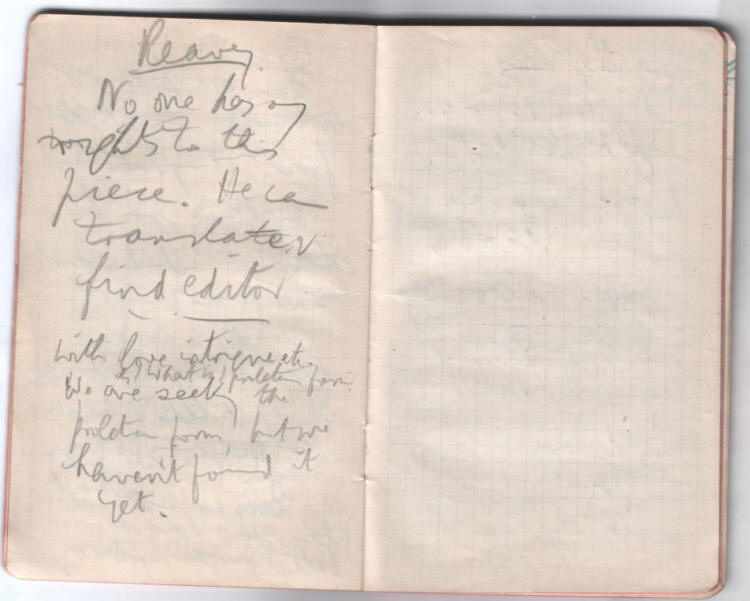 Reavey.
No one has any
rights to this
piece. He can
translate &
find editor
with love intrigue etc.
as what is proletn form
We are seekg the
proletn form, but we
haven't found it
yet.